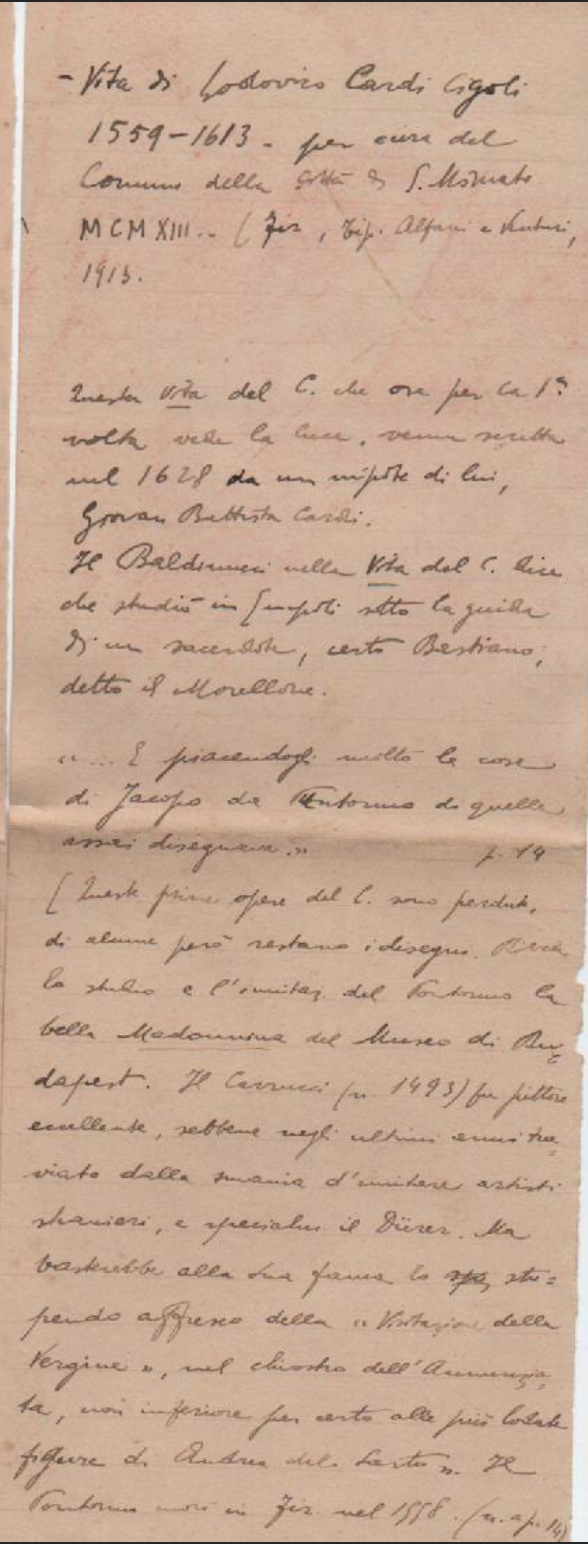 - Vita di Lodovico Cardi Cigoli
1559-1613 - per cura del
Comune della Città di S. Miniato
MCMXIII.. (Fir, Tip. Alfani e Venturi,
1913.
Questa Vita del C. che ora per la 1ª
volta vede la luce, venne scritta
nel 1628 da un nipote di lui,
Giovan Battista Cardi.
Il Baldinucci nella Vita del C. dice
che studiò in Empoli sotto la guida
di un sacerdote, certo Bastiano,
detto il Morellone.
"... E piacendogli molto le cose
di Jacopo da Pontormo di quelle
assai disegnava." p. 14
[Queste prime opere del C. sono perdute,
di alcune però restano i disegni.
lo studio e l'imitaz. del Pontormo la
bella Madonnina del Museo di Bu=
dapest. Il Carrucci (n 1493) fu pittore
eccellente, sebbene negli ultimi anni tra=
viato dalla smania d'imitare artisti
stranieri, e specialm il Dürer. Ma
basterebbe alla sua fama lo stu=
pendo affresco della "Visitazione della
Vergine", nel chiostro dell'Annunzia=
ta, non inferiore per certo alle più lodate
figure di Andrea del Sarto". Il
Pontormo morì in Fir. nel 1558. (n. a p. 14)